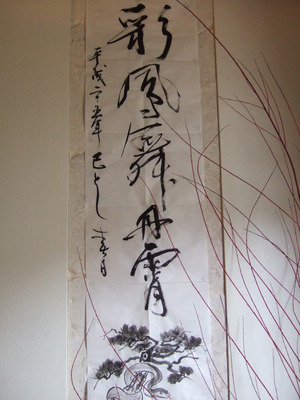 彩鳳舞丹霄
平成二十五年 巳とし